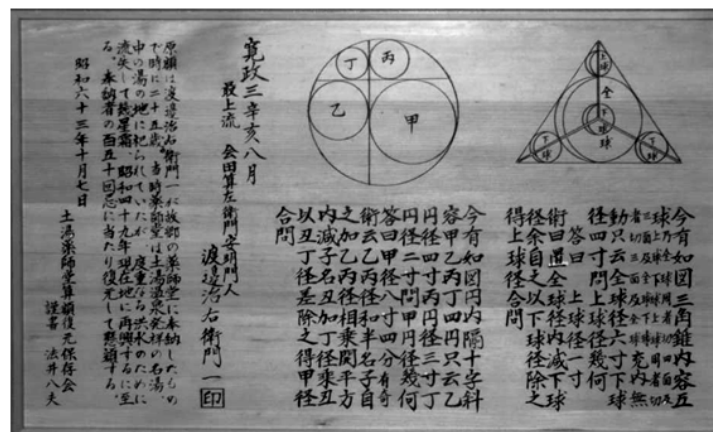 全
球
下
球
今有如図三角錐内容互
球
充内無
動只云全球径六寸下球
径四寸問上球径幾何
答曰 上球径一寸
術曰置全球径内減下球
径余自之以下球径除之
得上球径合問
丙
丁
甲
乙
今有如図円内隔十字斜
容甲乙丙丁四円只云乙
円径四寸丙円径三寸丁
円径二寸問甲円径幾何
答曰甲径八寸四分有奇
術云乙丙径和半名子自
之加乙丙径相乗開平方
内減子名丑加丁径乗丑
以丑丁径差除之得甲径
合問
寛政三辛亥八月
最上流 会田算左衛門安明門人
渡邉治右衛門一 印
原額は渡邉治右衛門一が故郷の薬師堂に奉納したもの
で時に二十五歳。当時薬師堂は土湯温泉発祥の石湯、
中の湯の地に祀られていたが、度重なる洪水のために
流失して幾星霜、昭和四十九年現在地に再興するに至
る。奉納者の百五十回忌に当たり復元して懸額する。
昭和六十三年十月七日
土湯薬師堂算額復元保存会
謹書 法井八夫